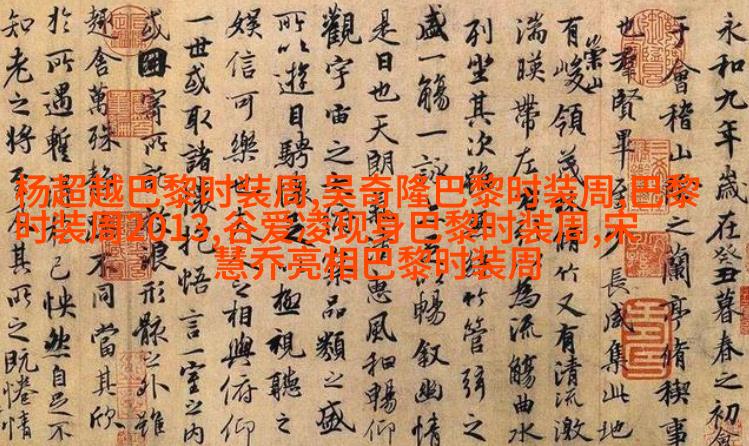 永和九年歲在癸丑暮春之初會
于會稽山之蘭亭脩稧事
也羣賢畢至少長咸集此地
有崇山峻領茂脩竹又有清流激
湍暎帶左為流觴曲水
列坐其次竹管弦之
盛一觴一詠暢叙幽情
是日也天朗惠風和暢仰
觀宇宙之品類之盛
所以遊目騁極視聽之
娛信可樂也之相與俯仰
一世或取諸懷悟言一室之內
或因寄所浪形骸之外雖
趣舍萬殊不同當其欣
於所遇暫己怏然自足不
知老之將其所之既惓情
杨超越巴黎时装周,吴奇隆巴黎时装周,巴黎
时装周2013,谷爱凌现身巴黎时装周,宋
慧乔亮相巴黎时装周